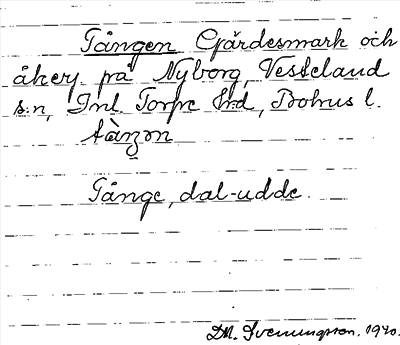 Tången Gärdesmark och
åker på Nyborg, Vesteland
s:n, Inl. Torpe Hrd, Bohus l.
tàŋən
Tånge, dal-udde.
D.M. Svenungsson. 1920.